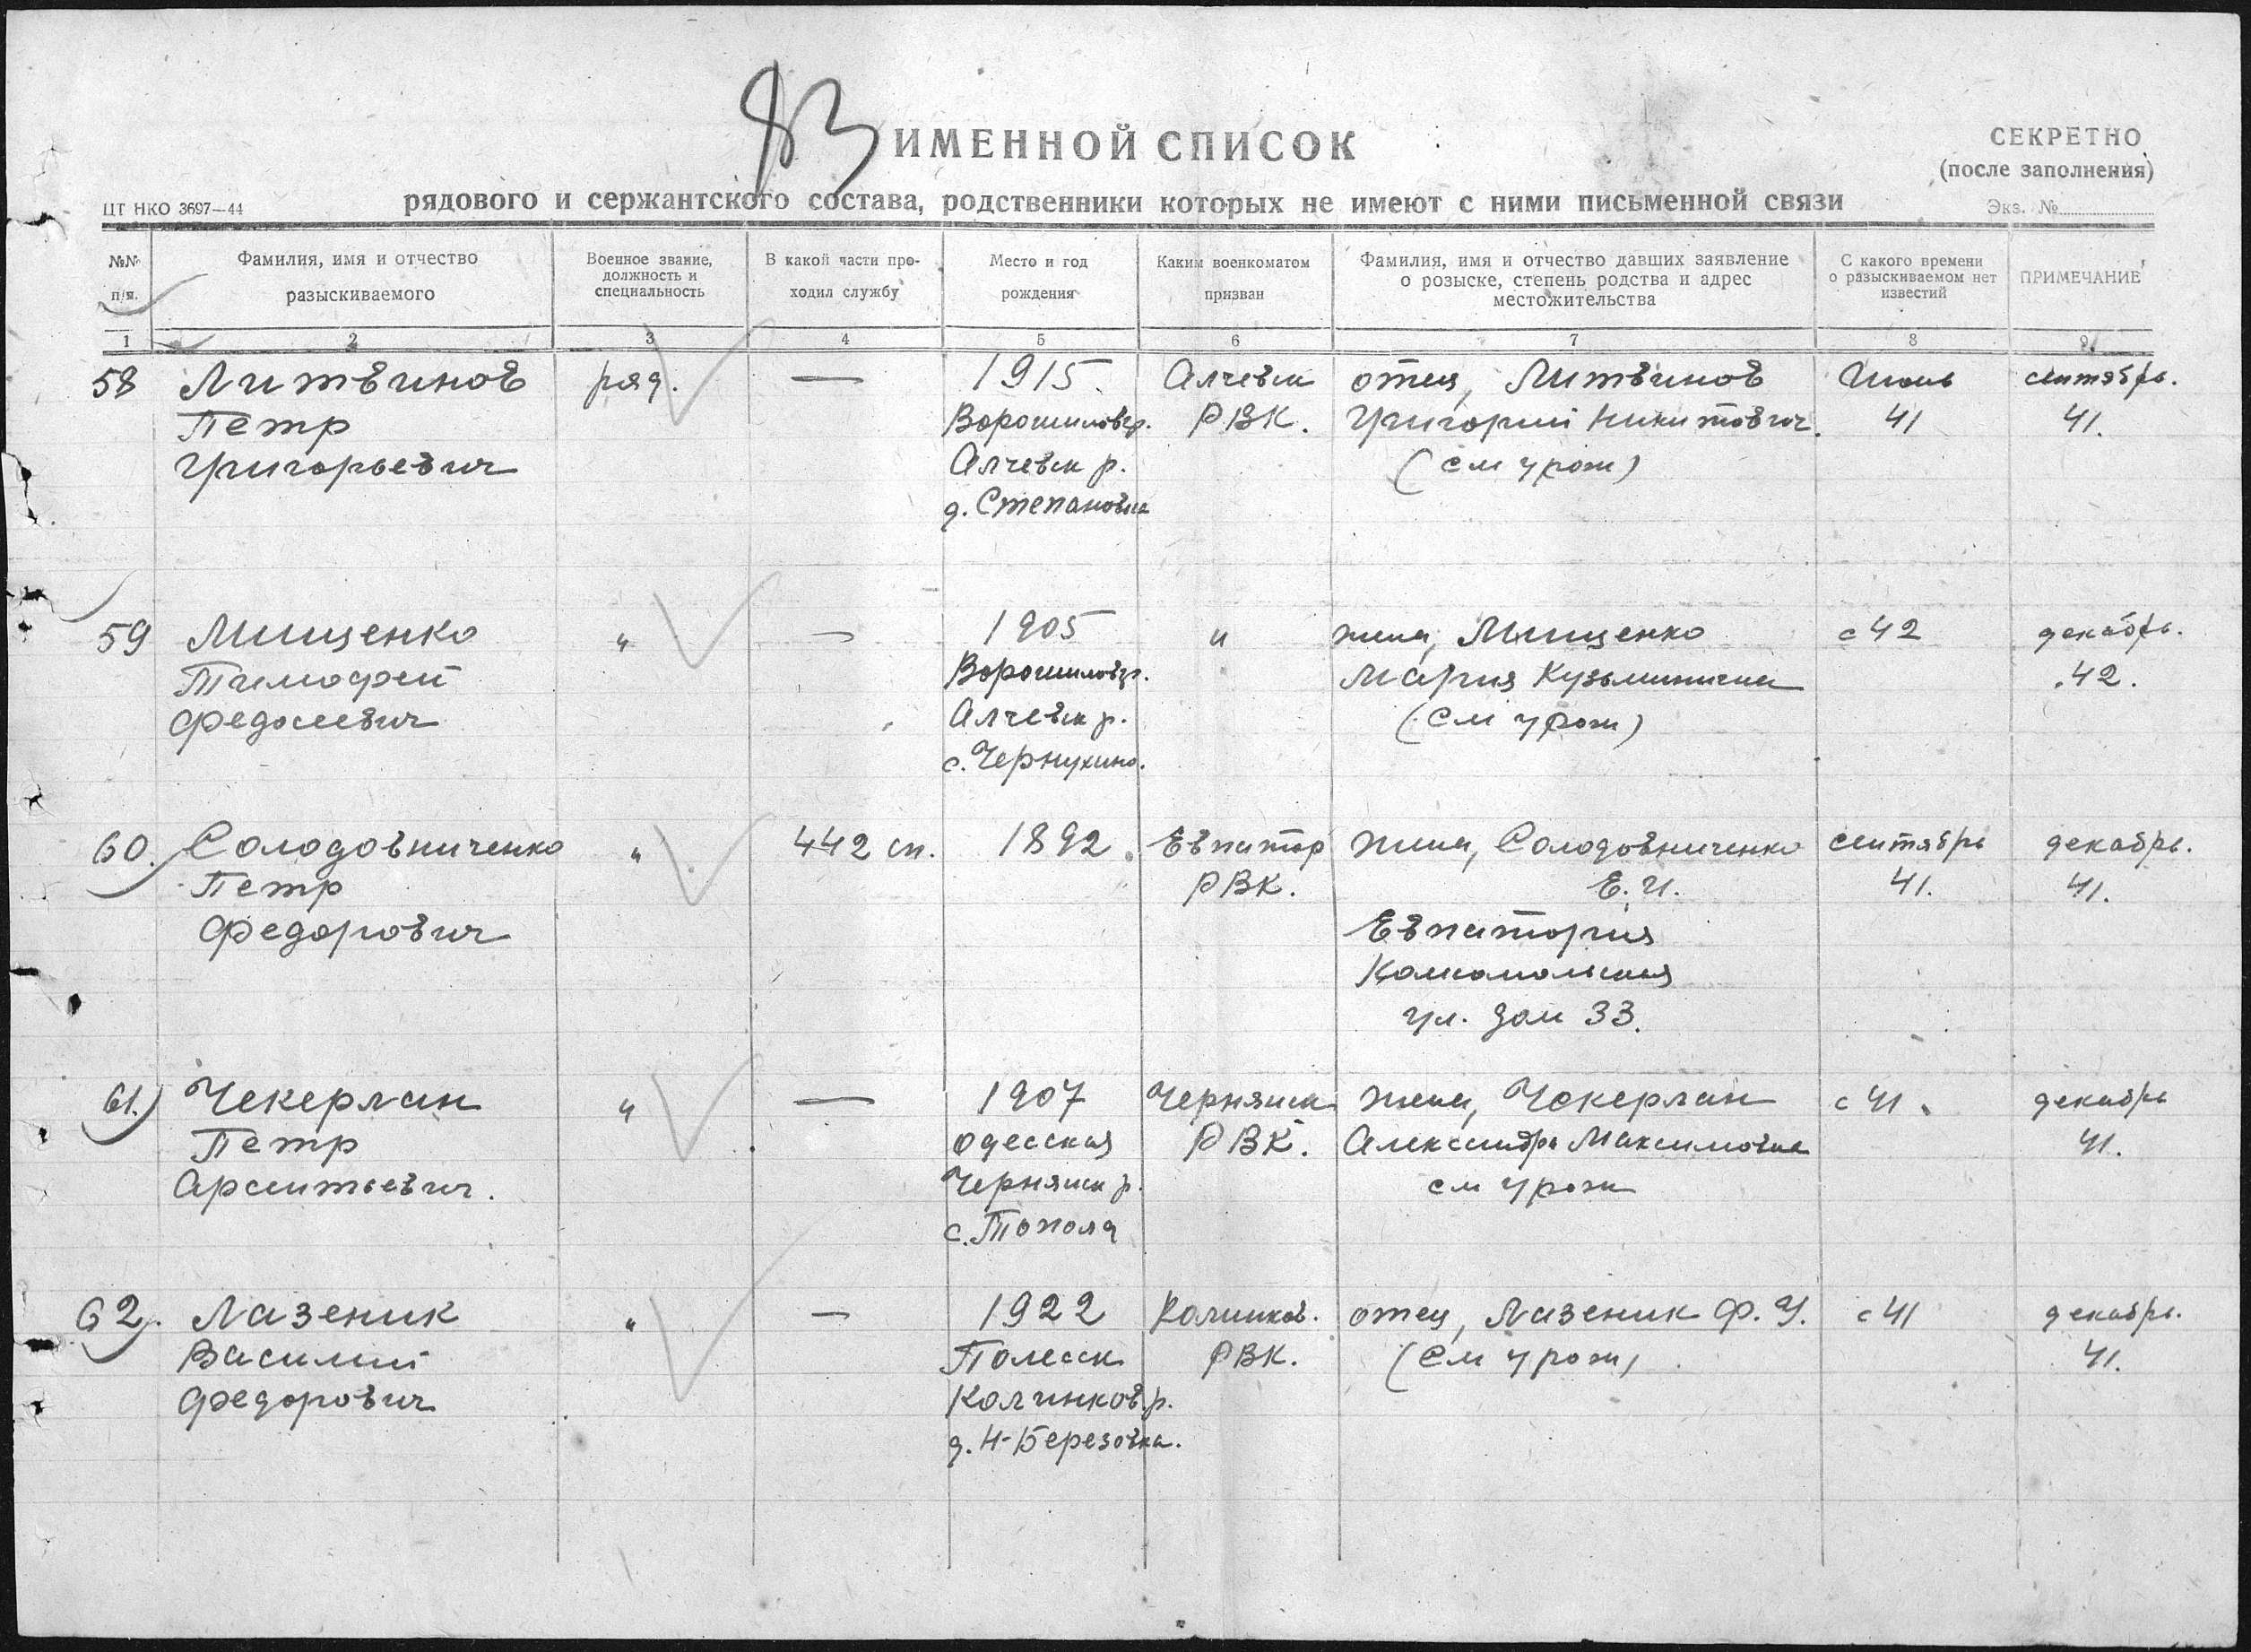 83
ИМЕННОЙ СПИСОК
СЕКРЕТНО
(после заполнения)
рядового и сержантского состава, родственники которых не имеют с ними письменной связи
ЦТ НКО 3697—44
Экз. №
№№ п/п.
Фамилия, имя и отчество разыскиваемого
Военное звание, должность и специальность
В какой части проходил службу
Место и год рождения
Каким военкоматом призван
Фамилия, имя и отчество давших заявление о розыске, степень родства и адрес местожительства
С какого времени о разыскиваемом нет известий
ПРИМЕЧАНИЕ
1 2 3 4 5 6 7 8 9
58 Литвинов ряд. — 1915 Алчевск отец, Литвинов сентябрь.
Петр Ворошиловгр. РВК. Григорий Никитович. 41 41.
Григорьевич Алчевск р. (см у рож)
д. Степановка
59 Мищенко " — 1905 " жена, Мищенко с 42 декабрь.
Тимофей Ворошиловгр. Мария Кузьминична 42.
Федосеевич Алчевск р. (см у рож)
с. Чернухино.
60. Солодовниченко " 442 сп. 1892 Евпатор жена, Солодовниченко сентябрь декабрь.
Петр РВК. Е. И. 41. 41.
Федорович Евпатория
Комсомольская
ул. дом 33.
61. Чекерлан " — 1907 Чернянск жена, Чекерлан с 41. декабрь
Петр Одесская РВК. Александра Максимовна 41.
Арсентьевич. Чернянск р. см у рож
с. Тополя
62. Лазеник " — 1922 Калинков. отец, Лазеник Ф. У. с 41 декабрь.
Василий Полесск РВК. (см у рож) 41.
Федорович Калинков. р.
д. Н-Березовка.